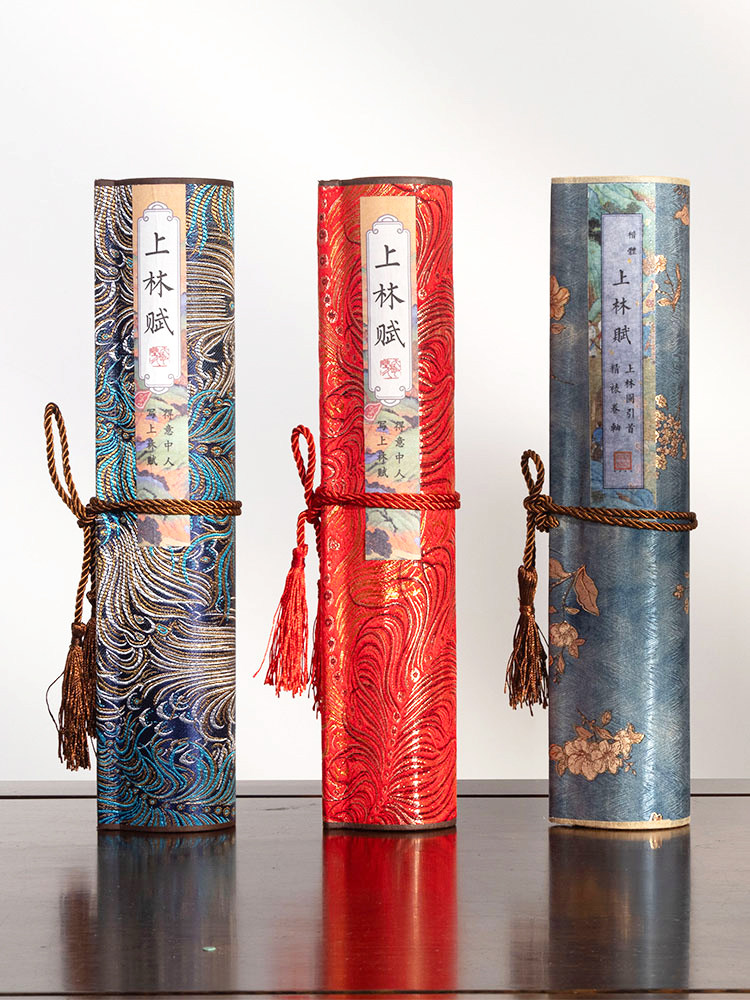 上林赋
得意中人
写上林赋
上林赋
得意中人
写上林赋
楷體
上林赋
上林圖引首
精裱卷軸